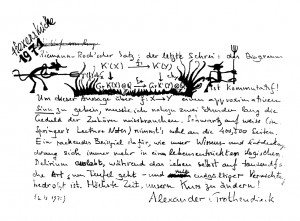 Hexenküche
1971
Riemann-Roch'scher Satz: der letzte Schrei: das Diagramm
K˙(X) → K˙(Y)
ist kommutatif!
Um dieser Aussage über f: X → Y einen approximativen
Sinn zu geben, musste ich nahezu zwei Stunden lang die
Geduld der Zuhörer missbrauchen. Schwarz auf weiss (in
Springer's Lecture Notes) nimmt's wohl an die 400, 500 Seiten.
Ein packendes Beispiel dafür, wie unser Wissens- und Entdeckungs-
drang sich immer mehr in einem lebensentrückten logischen
Delirium auslebt, während das Leben selbst auf tausendfache
Art zum Teufel geht - und mit endgültiger Vernichtung
bedroht ist. Höchste Zeit, unsern Kurs zu ändern!
Alexander Grothendieck